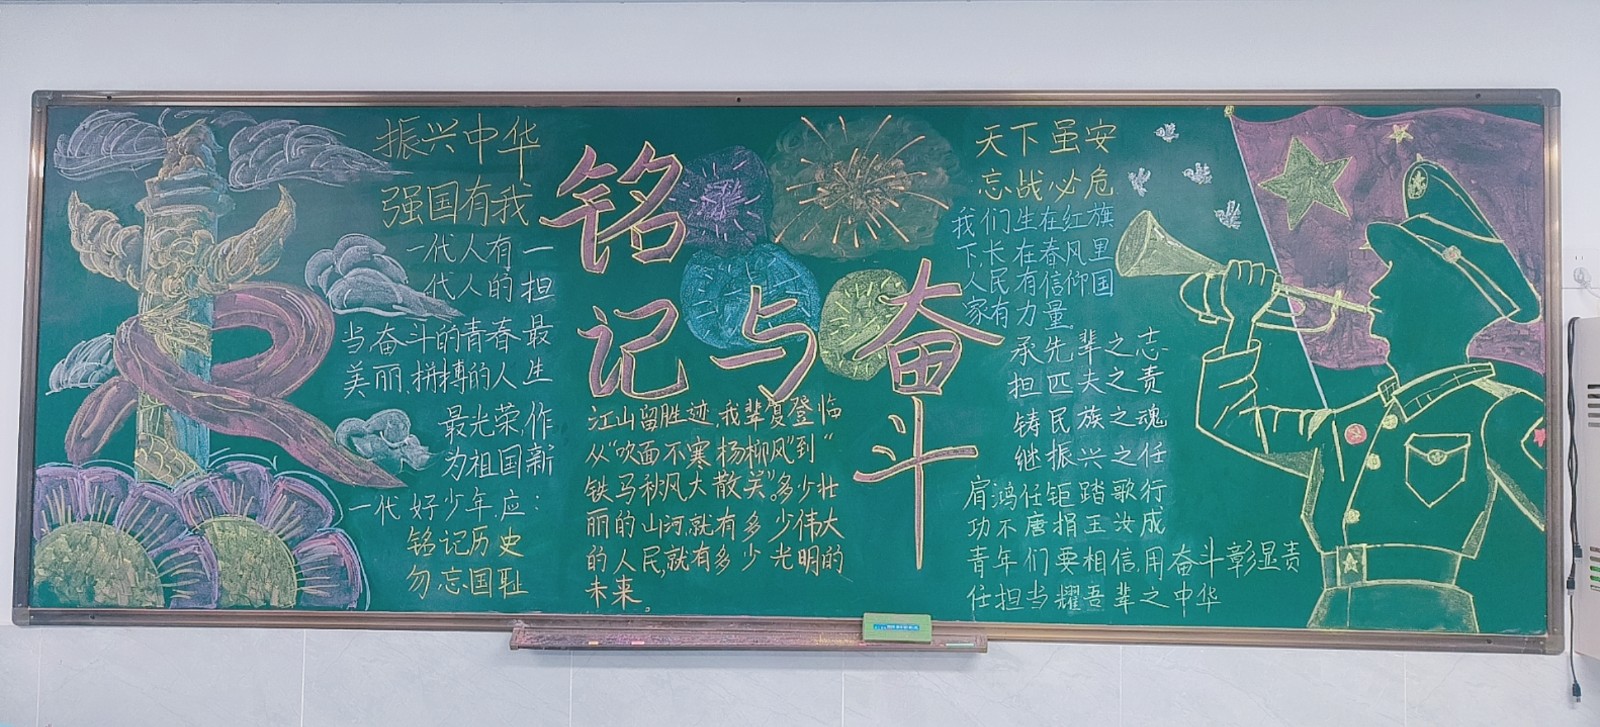 振兴中华
强国有我
一代人有一
代人的担
当,奋斗的青春最
美丽,拼搏的人生
最光荣,作
为祖国新
一代好少年应:
铭记历史
勿忘国耻
铭
记
与
奋
斗
江山留胜迹,我辈复登临
从“吹面不寒杨柳风”到“
铁马秋风大散关”。多少壮
丽的山河,就有多少伟大
的人民,就有多少光明的
未来。
天下虽安
忘战必危
我们生在红旗
下,长在春风里
人民有信仰国
家有力量
承先辈之志
担匹夫之责
铸民族之魂
继振兴之任
肩鸿任钜踏歌行
功不唐捐玉汝成
青年们要相信,用奋斗彰显责
任担当耀吾辈之中华